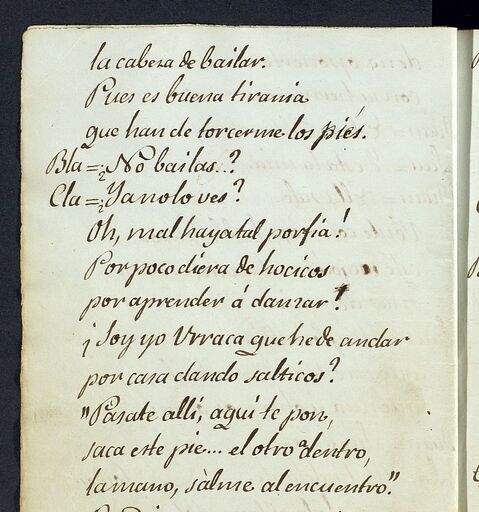 la cabeza de bailar.
Pues es buena tirania
que han de torcerme los piés.
Bla=¿No bailas..?
Cla=¿Ya no lo ves?
Oh, mal haya tal porfia!
Por poco diera de hocicos
por aprender á danzar!
¡Soy yo Urraca que he de andar
por casa dando salticos?
"Pasate allí, aquí te pon,
saca este pie... el otro dentro,
la mano, sàlme al encuentro."